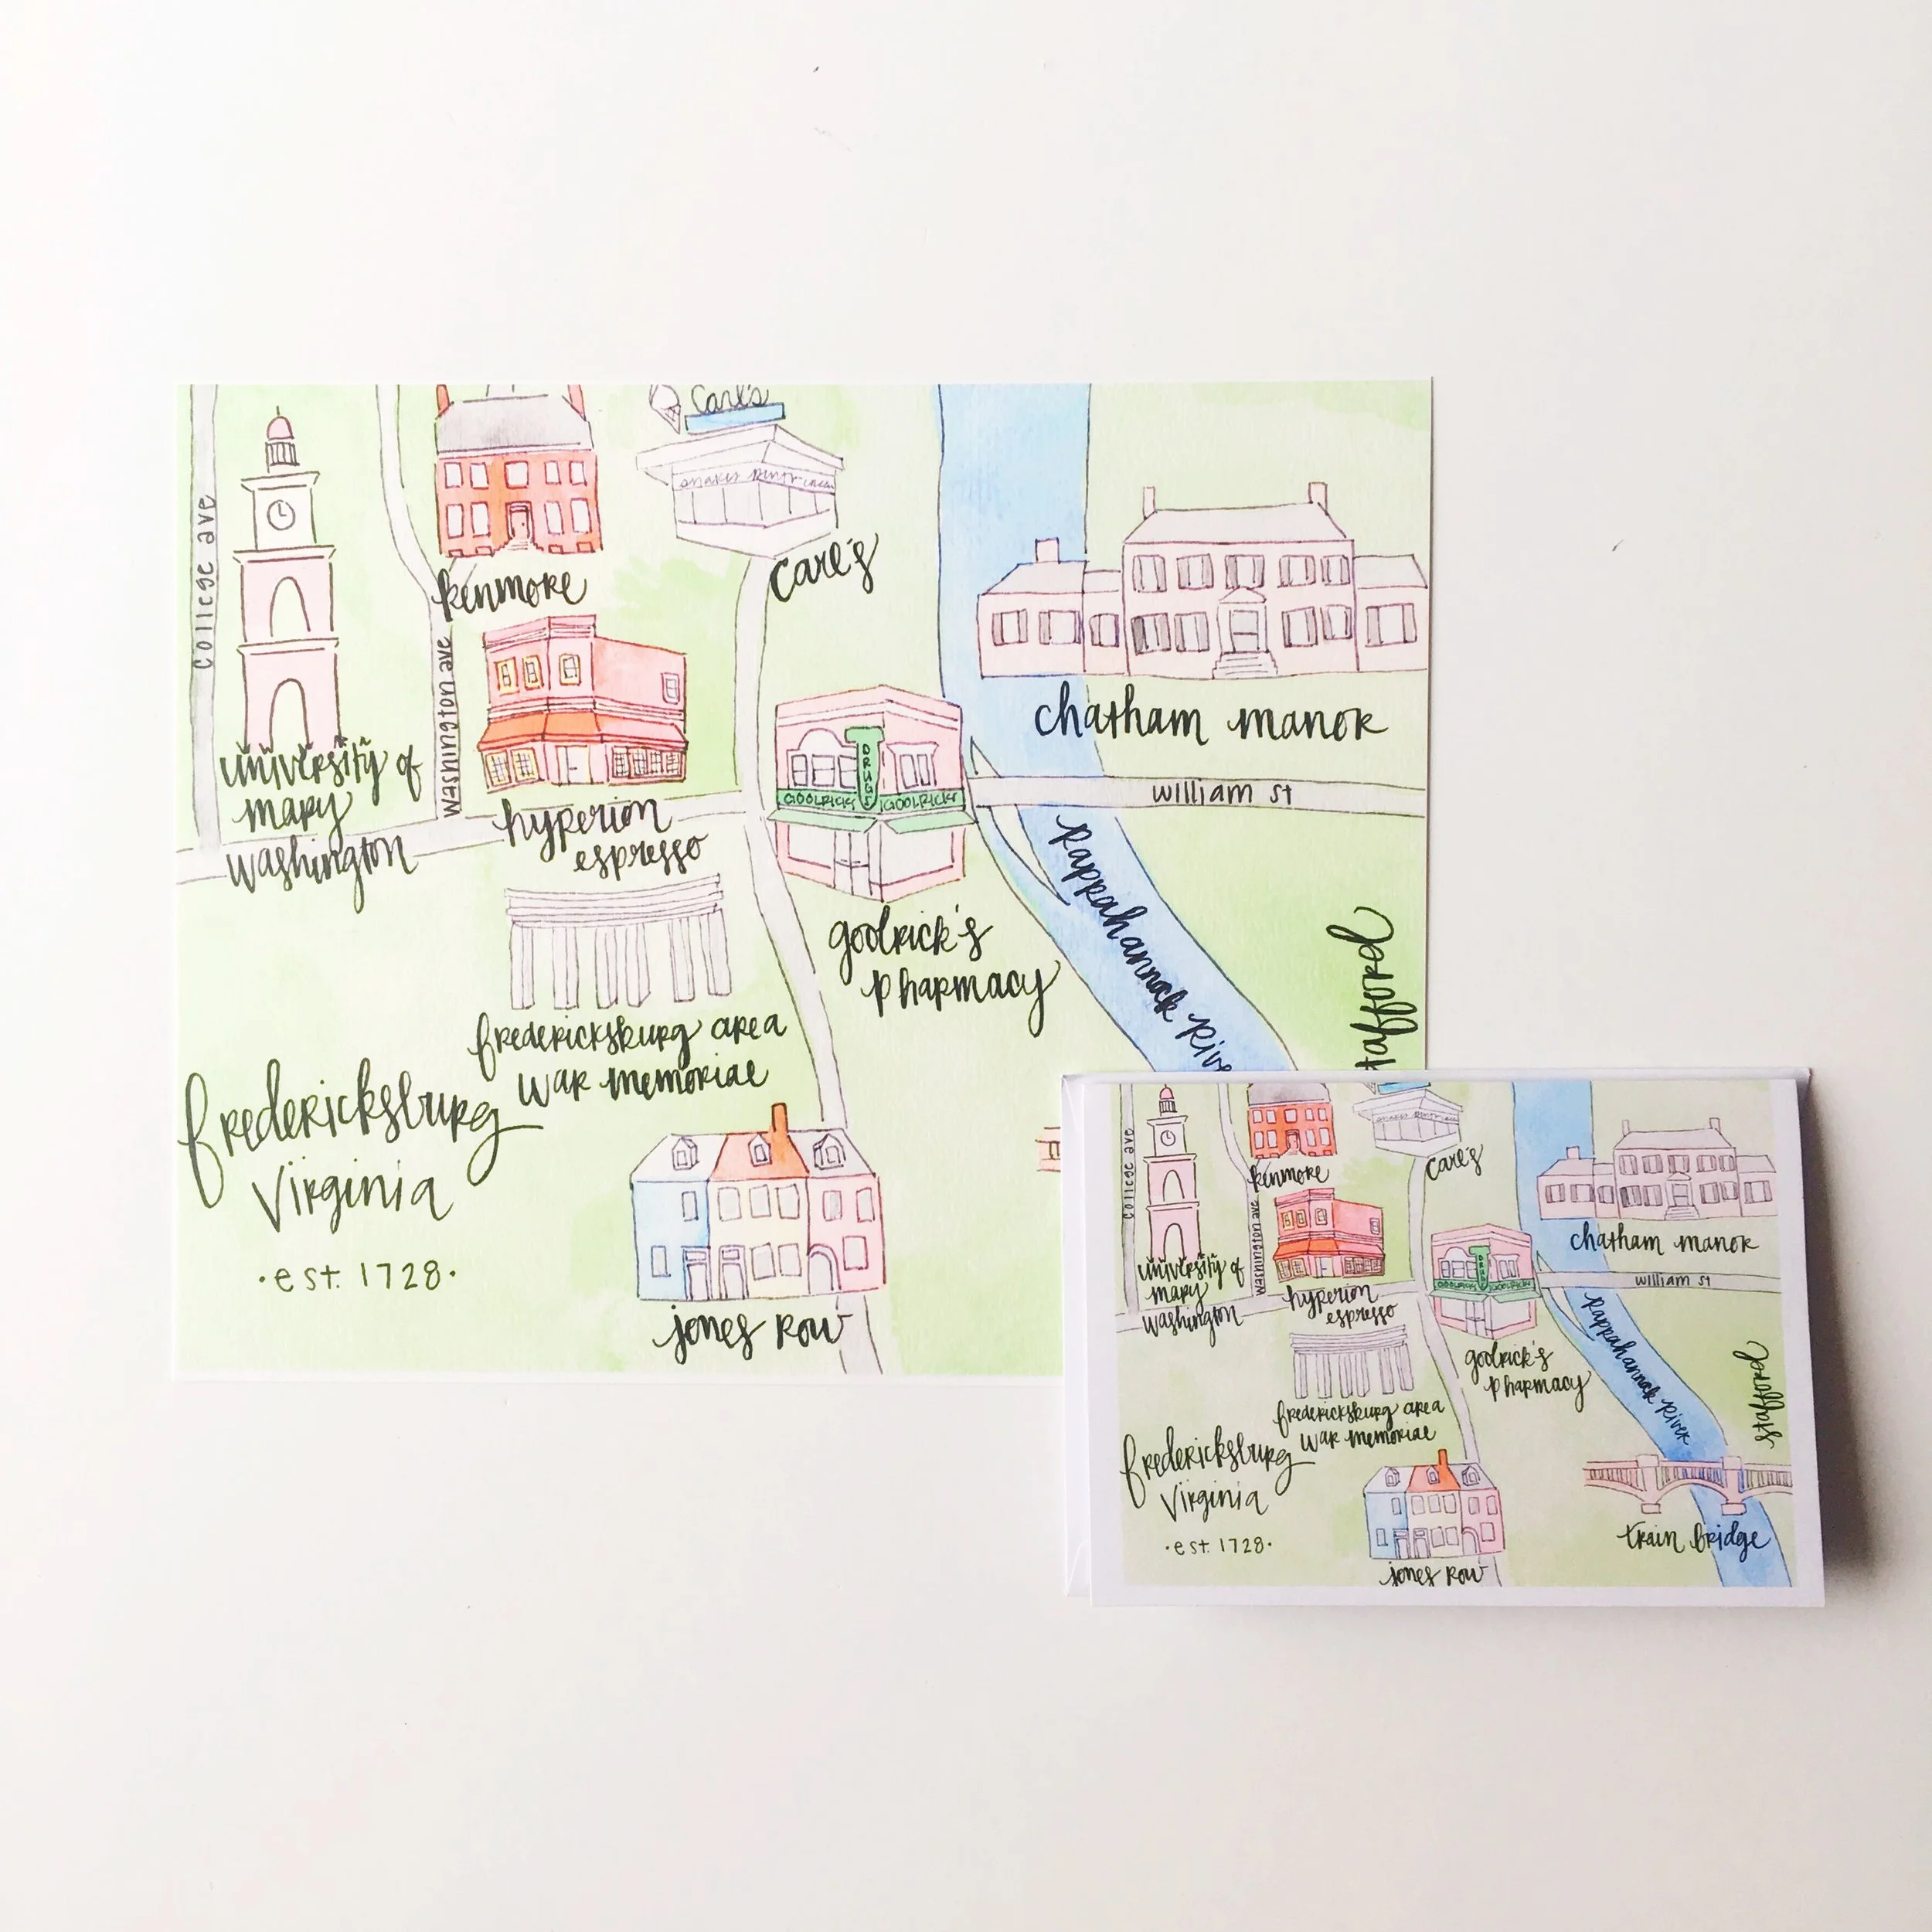 Carl's
college ave
kenmore
carl's
washington ave
university of
mary
washington
hyperion
espresso
DRUGS
GOOLRICKS
GOOLRICKS
chatham manor
william st
Rappahannock Rive
goolrick's
pharmacy
tafford
fredericksburg area
war memorial
fredericksburg
virginia
·est. 1728·
jones row
college ave
kenmore
carl's
washington ave
university of
mary
washington
hyperion
espresso
DRUGS
GOOLRICKS
GOOLRICKS
chatham manor
william st
Rappahannock River
goolrick's
pharmacy
stafford
fredericksburg area
war memorial
fredericksburg
virginia
·est. 1728·
jones row
train bridge